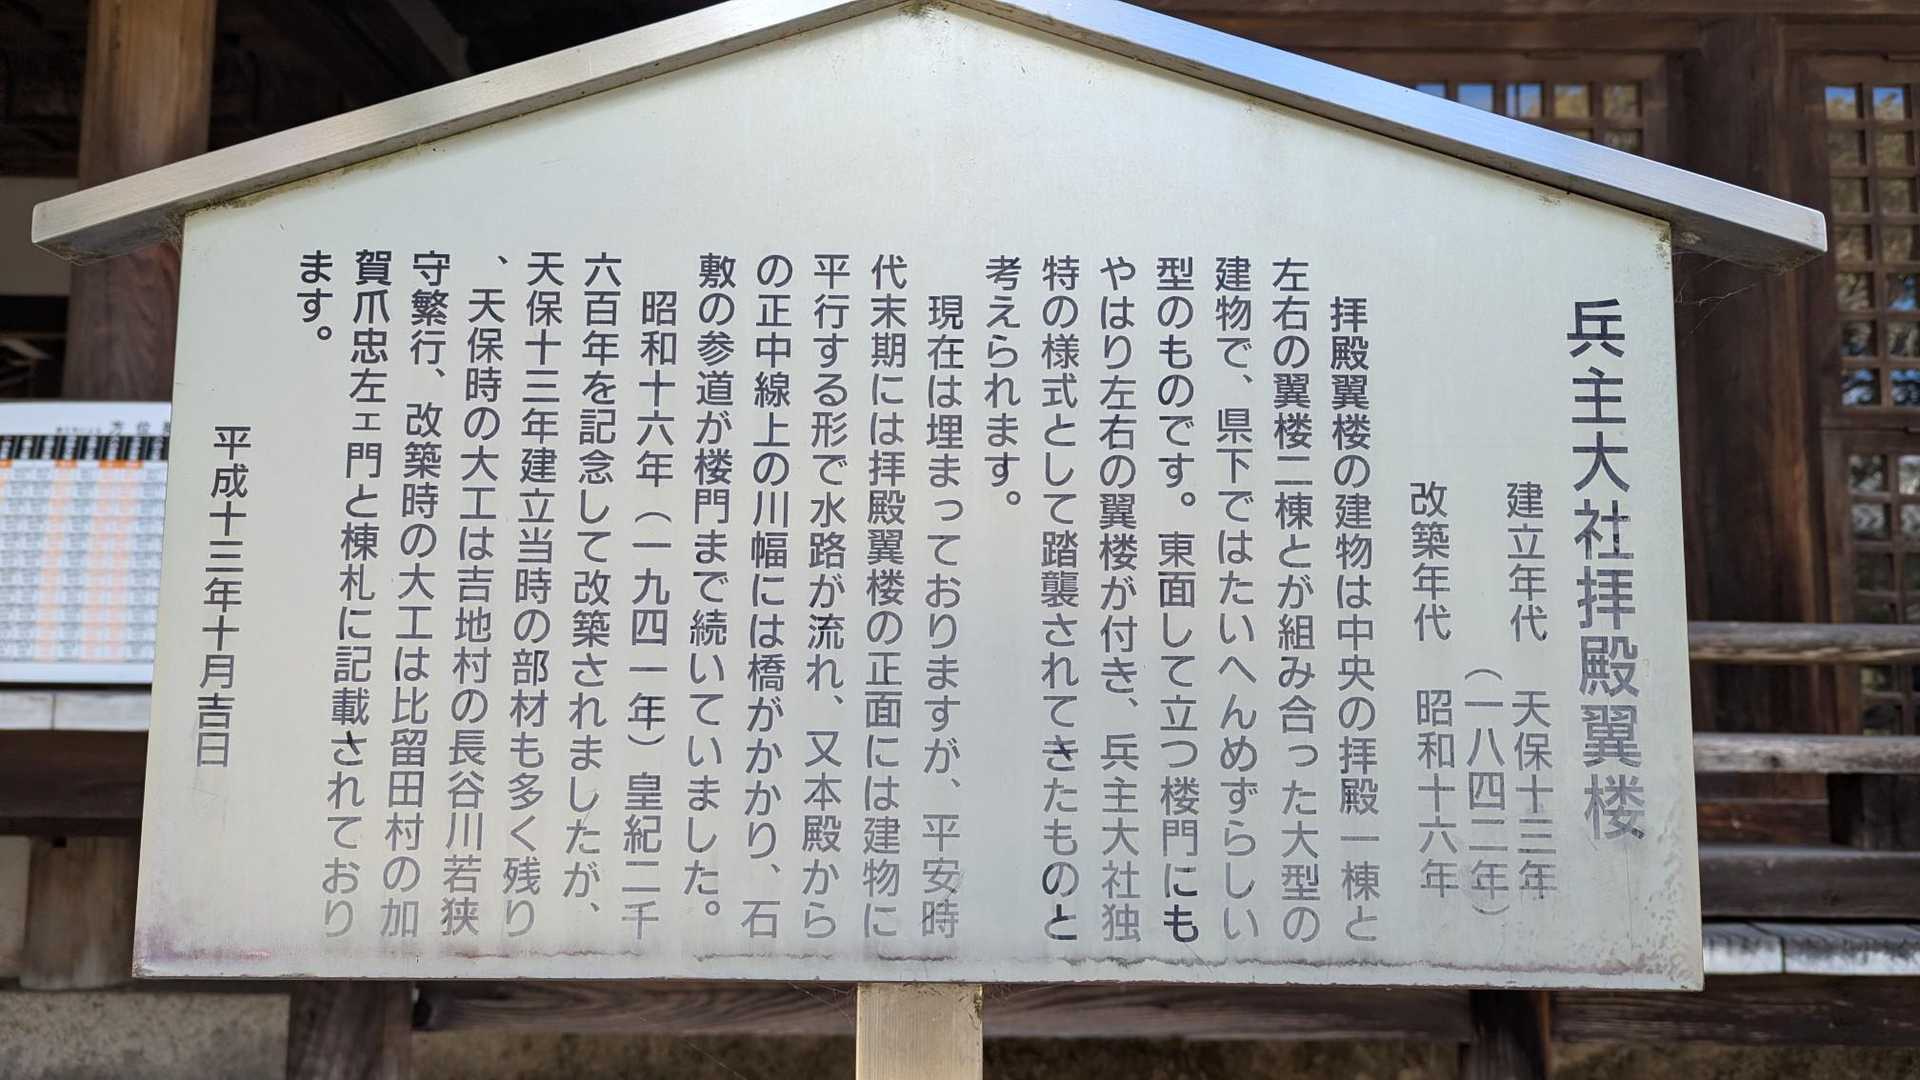 兵主大社拝殿翼楼
建立年代　天保十三年
（一八四二年）
改築年代　昭和十六年
拝殿翼楼の建物は中央の拝殿一棟と
左右の翼楼二棟とが組み合った大型の
建物で、県下ではたいへんめずらしい
型のものです。東面して立つ楼門にも
やはり左右の翼楼が付き、兵主大社独
特の様式として踏襲されてきたものと
考えられます。
現在は埋まっておりますが、平安時
代末期には拝殿翼楼の正面には建物に
平行する形で水路が流れ、又本殿から
の正中線上の川幅には橋がかかり、石
敷の参道が楼門まで続いていました。
昭和十六年（一九四一年）皇紀二千
六百年を記念して改築されましたが、
天保十三年建立当時の部材も多く残り
、天保時の大工は吉地村の長谷川若狭
守繁行、改築時の大工は比留田村の加
賀爪忠左ェ門と棟札に記載されており
ます。
平成十三年十月吉日